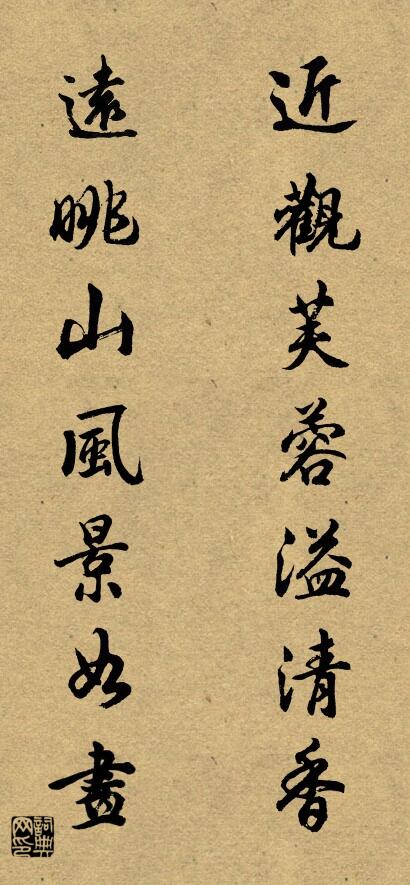 近觀芙蓉溢清香
遠眺山風景如畫
詞典網印